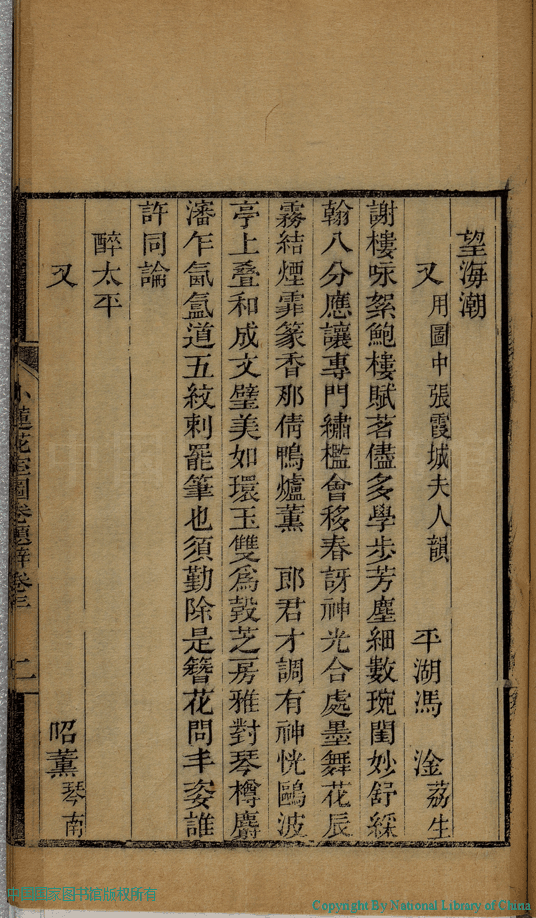 望海潮
又用圖中張霞城夫人韻 平湖馮淦荔生
謝樓咏絮鮑樓賦茗儘多學步芳塵細數琬閨妙舒綵
翰八分應讓專門繡檻會移春訝神光合處墨舞花辰
霧結煙霏篆香那倩鴨爐薰 郎君才調有神恍鷗波
亭上叠和成文璧美如環玉雙爲瑴芝房雅對琴樽麝
瀋乍氤氳道五紋刺罷筆也須勤除是簪花問丰姿誰
許同論
醉太平
又 昭薰琴南
小蓮花室圖卷題辭卷三 二
中国国家图书馆版权所有
Copyright By National Library of China